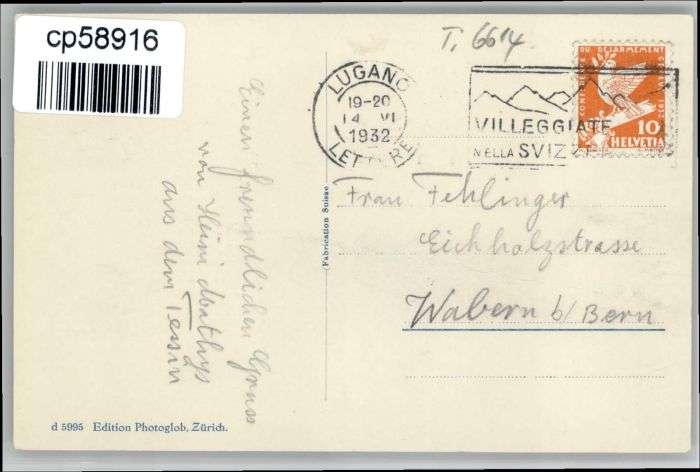 cp58916
T. 6614.
LUGANO
19-20
14 VI
1932
LETTERE
VILLEGGIATE
NELLA SVIZZ
DU DÉSARMEMENT
10
HELVETIA
Einen freundlichen Gruss
von Heini Mathys
aus dem Tessin
Fabrication Suisse
Frau Fehlinger
Eichholzstrasse
Wabern b/Bern
d 5995 Edition Photoglob, Zürich.